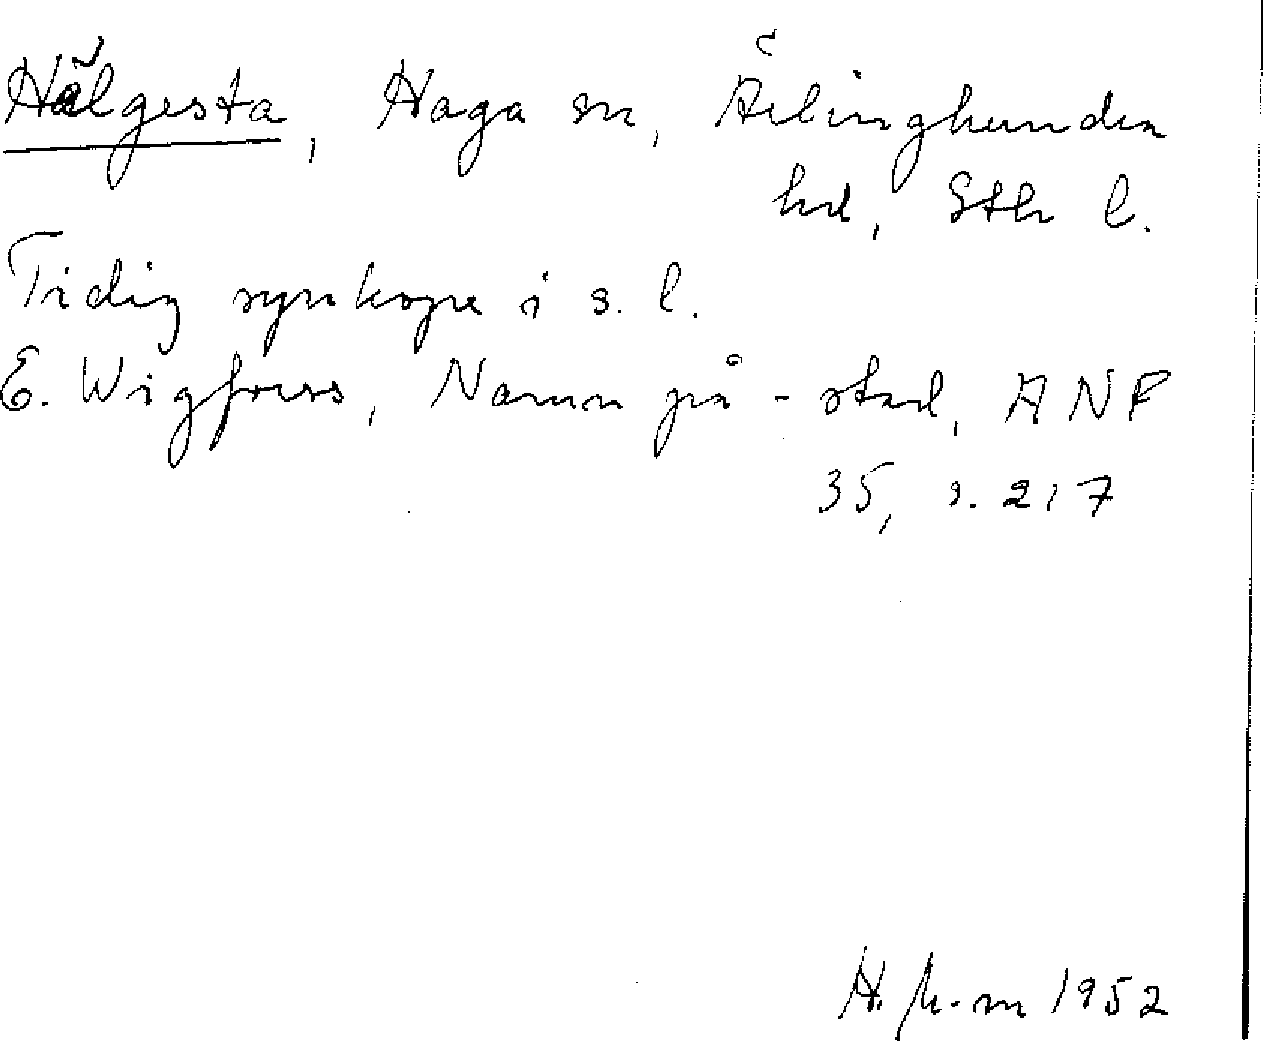 Hälgesta, Haga sn, Ärlinghundra
hd, Sth l.
Tidig synkope i s. l.
E. Wigforss, Namn på -stad, ANF
35, s. 217
H. 1952